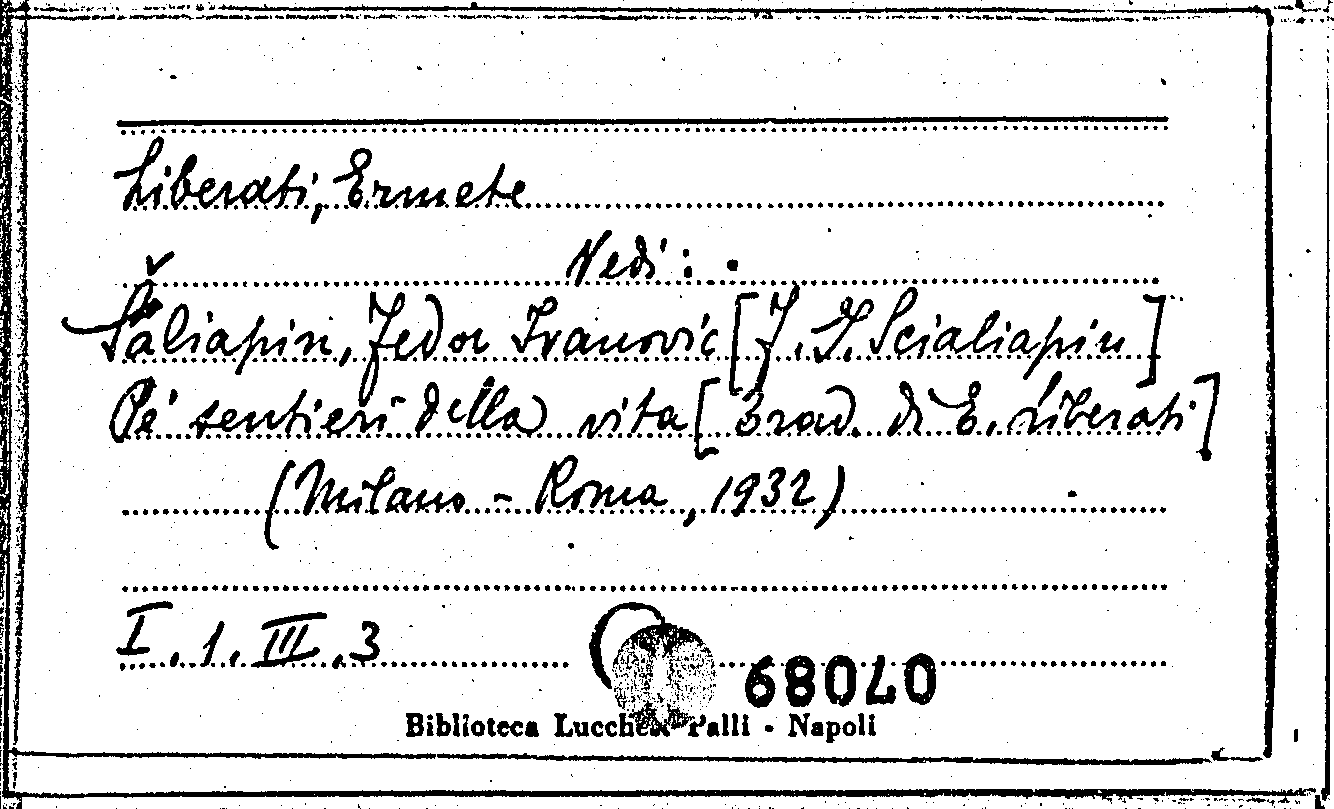 Liberati, Ermete
Vedi:
Šaliapin, Fedor Ivanovic [F. I. Scialiapin]
Pe' sentieri della vita [Trad. di E. Liberati]
(Milano - Roma, 1932)
I. 1. III. 3
07089
Biblioteca Lucchesi Palli - Napoli